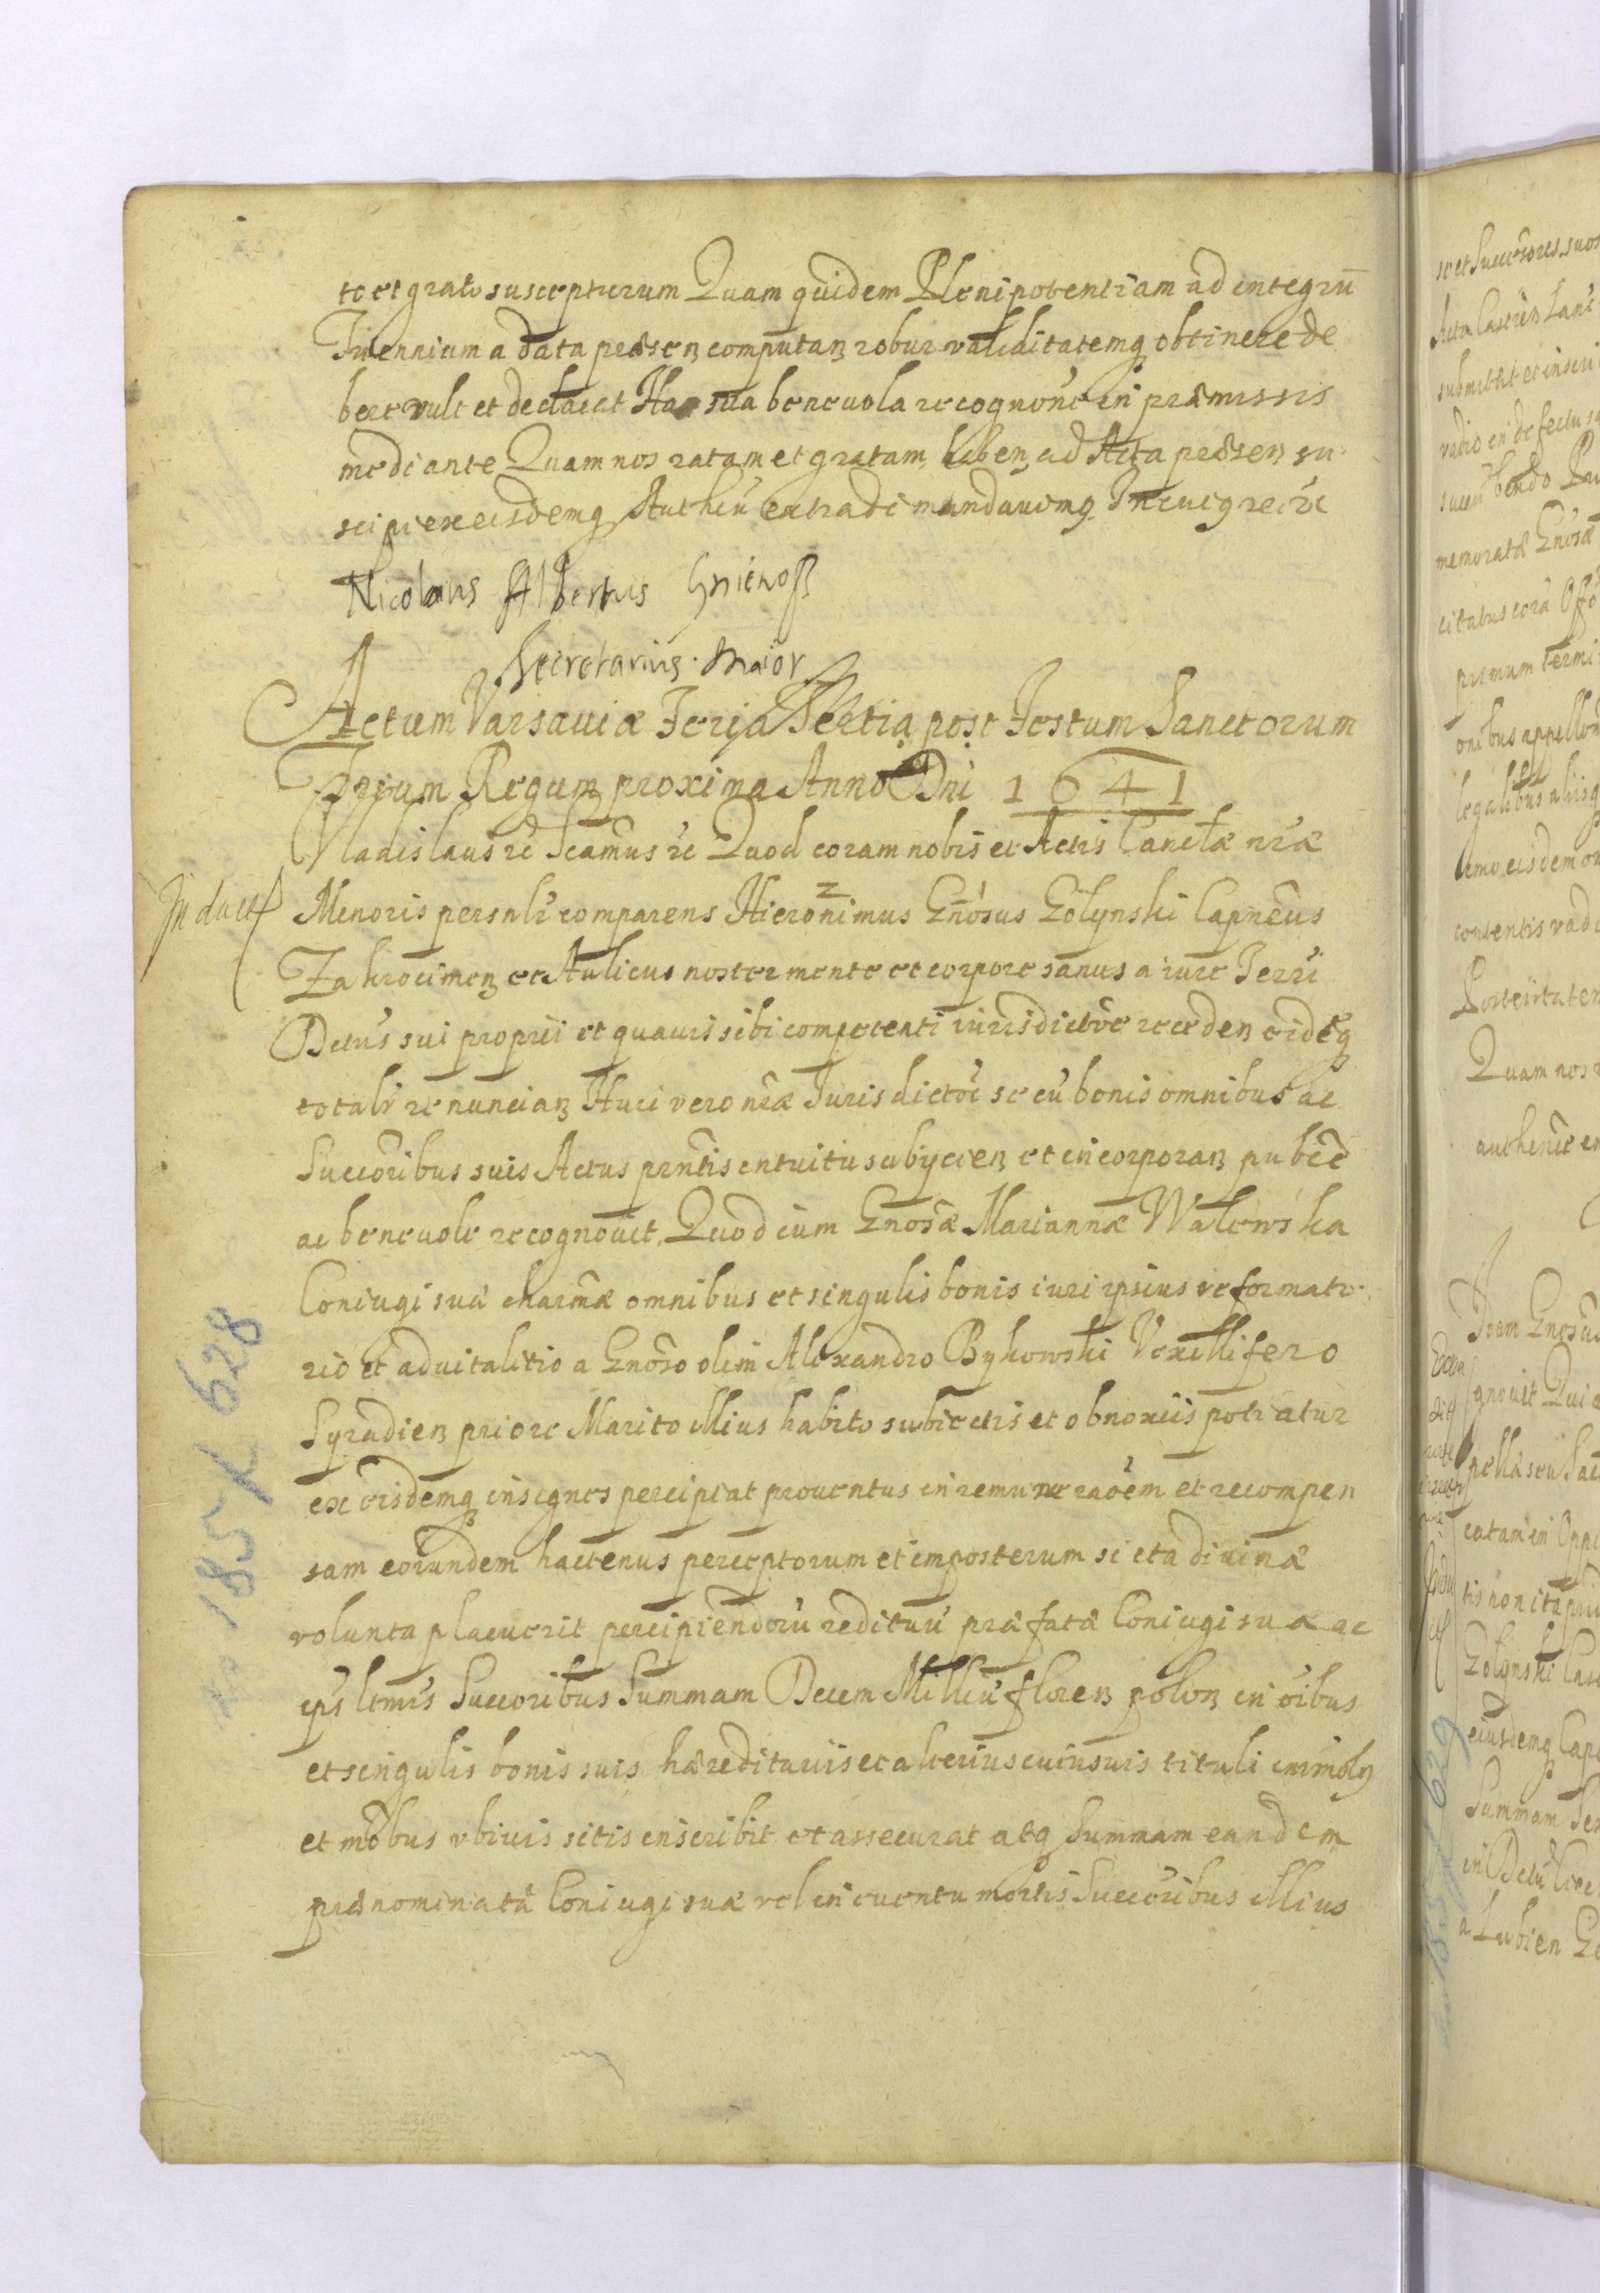 to et grato suscepturum Quam quidem Plenipotentiam ad integrū
Triennium a data præsen computan robur validitatemq obtinere de
bere vult et declarat Hac sua beneuola recognone in præmissis
mediante Quam nos ratam et gratam haben ad Acta præsen su
scipi ex eisdemq Authen extradi mandauimq
Nicolaus Albertus Gniewosz
Secretarius Maior
Actum Varsauiæ Feria Tertia post Festum Sanctorum
Trium Regum proxima Anno Dni 1641
Vladislaus rc Scamus rc Quod coram nobis et Actis Cancelæ nræ
Minoris persnlr comparens Hieronimus Gnosus Golynski Capneus
Zakrocimen et Aulicus noster mente et corpore sanus a iure Terri
Dctus sui proprii et quauis sibi competenti iurisdictōe receden eidēq
totalr renuncian Huic vero nræ Jurisdictōi se cū bonis omnibus ac
Succōribus suis Actus prntis intuitu subijcien et incorporan publce
ac beneuole recognouit Quod cum Gnosæ Mariannæ Walewska
Coniugi suæ charmæ omnibus et singulis bonis iuri ipsius reformato
rio et aduitalitio a Gnoso olim Alexandro Bykowski Vexillifero
Syradien priore Marito illius habito subiectis et obnoxiis potiatur
ex eisdemq insignes percipiat prouentus in remunerāoēm et recompen
sam eorundem hactenus perceptorum et imposterum si ita diuinæ
volunta placuerit percipiendorū redituū præfatæ Coniugi suæ ac
ips ltmis Succoribus Summam Decem Milliū floren polon in oibus
et singulis bonis suis hæreditariis et alterius cuiusuis tituli
et mōbus vbiuis sitis inscribit et assecurat atq Summam eandem
prænominatæ Coniugi suæ vel in euentu mortis Succōribus illius
Induct
185 K 628
se et Succesores suos
Acta Castren Lanc
submittit et inseri
vadio in defectu
memoratæ Gnosæ
primum termi
legalibus aliisq
contentis vad
Posteritatem
Quam nos
Idem Gnosus
gnouit Qui a
Golynski Cas
eiusdemq Cap
Summam
a Lubien Go
629